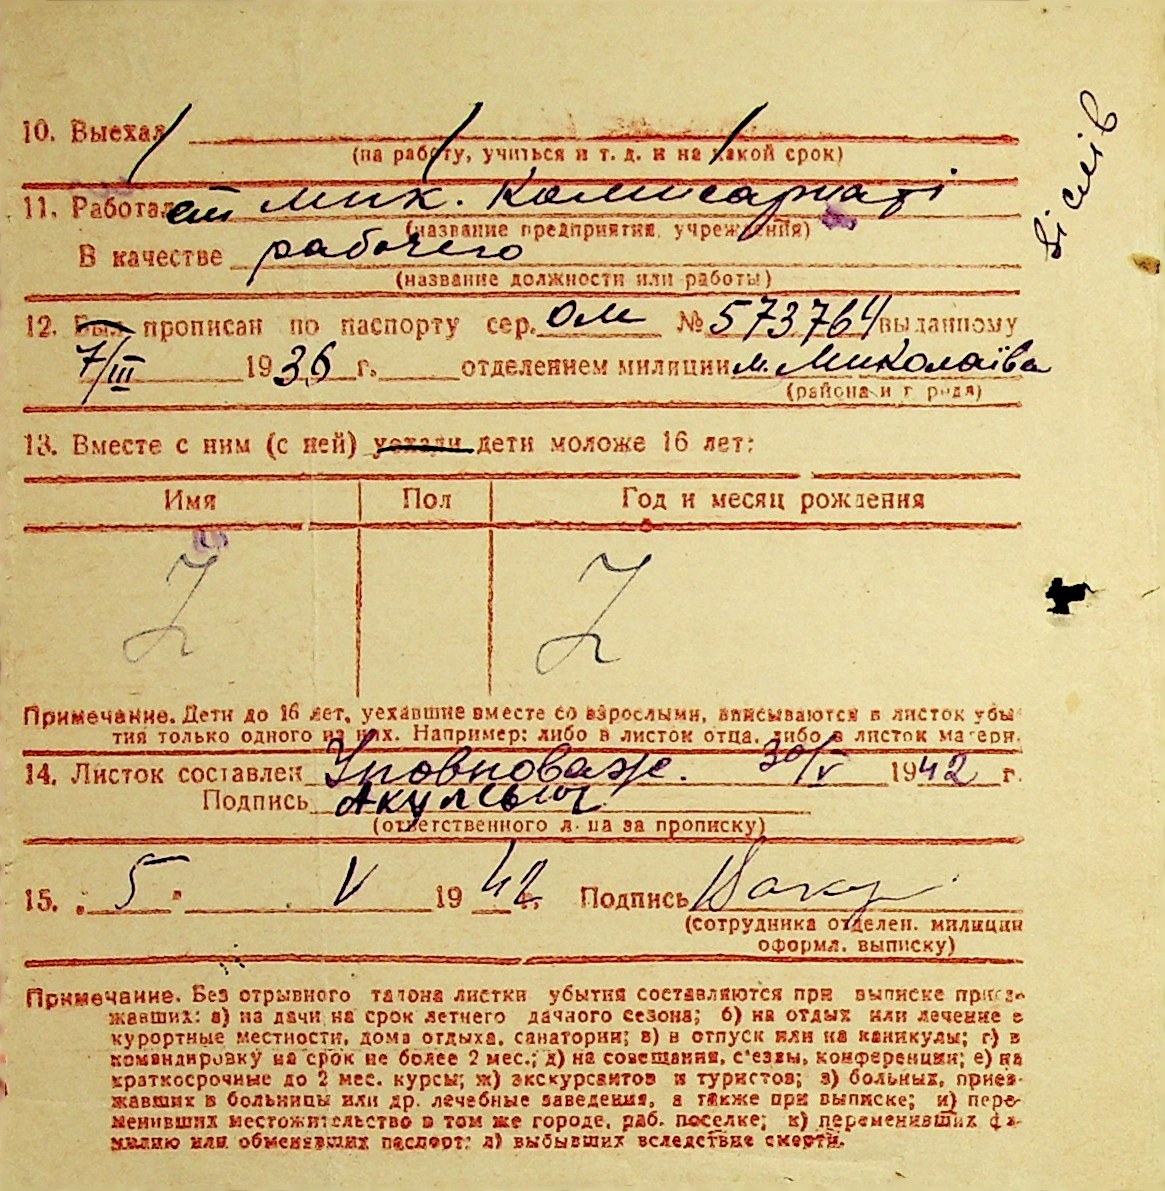 10. Выехал
(на работу, учиться и т. д. и на какой срок)
11. Работал ст мик. Комисариаті
(название предприятия, учреждения)
В качестве рабочего
(название должности или работы)
12. Был прописан по паспорту сер. ОМ № 573764 выданному
7/III 1936 г. отделением милиции м. Миколаїва
(района и города)
13. Вместе с ним (с ней) уехали дети моложе 16 лет:
Имя Пол Год и месяц рождения
Z Z
Примечание. Дети до 16 лет, уехавшие вместе со взрослыми, вписываются в листок убы-
тия только одного из них. Например: либо в листок отца, либо в листок матери.
14. Листок составлен Уповноваж. 30/V 1942 г.
Подпись
(ответственного лица за прописку)
15. „5" V 1942 г. Подпись
(сотрудника отделен. милиции
оформл. выписку)
Примечание. Без отрывного талона листки убытия составляются при выписке приез-
жавших: а) на дачи на срок летнего дачного сезона; б) на отдых или лечение в
курортные местности, дома отдыха, санатории; в) в отпуск или на каникулы; г) в
командировку на срок не более 2 мес.; д) на совещания, с'езды, конференции; е) на
краткосрочные до 2 мес. курсы; ж) экскурсантов и туристов; з) больных, приез-
жавших в больницы или др. лечебные заведения, а также при выписке; и) пере-
менивших местожительство в том же городе, раб. поселке; к) переменивших фа-
милию или обменявших паспорт; л) выбывших вследствие смерти.